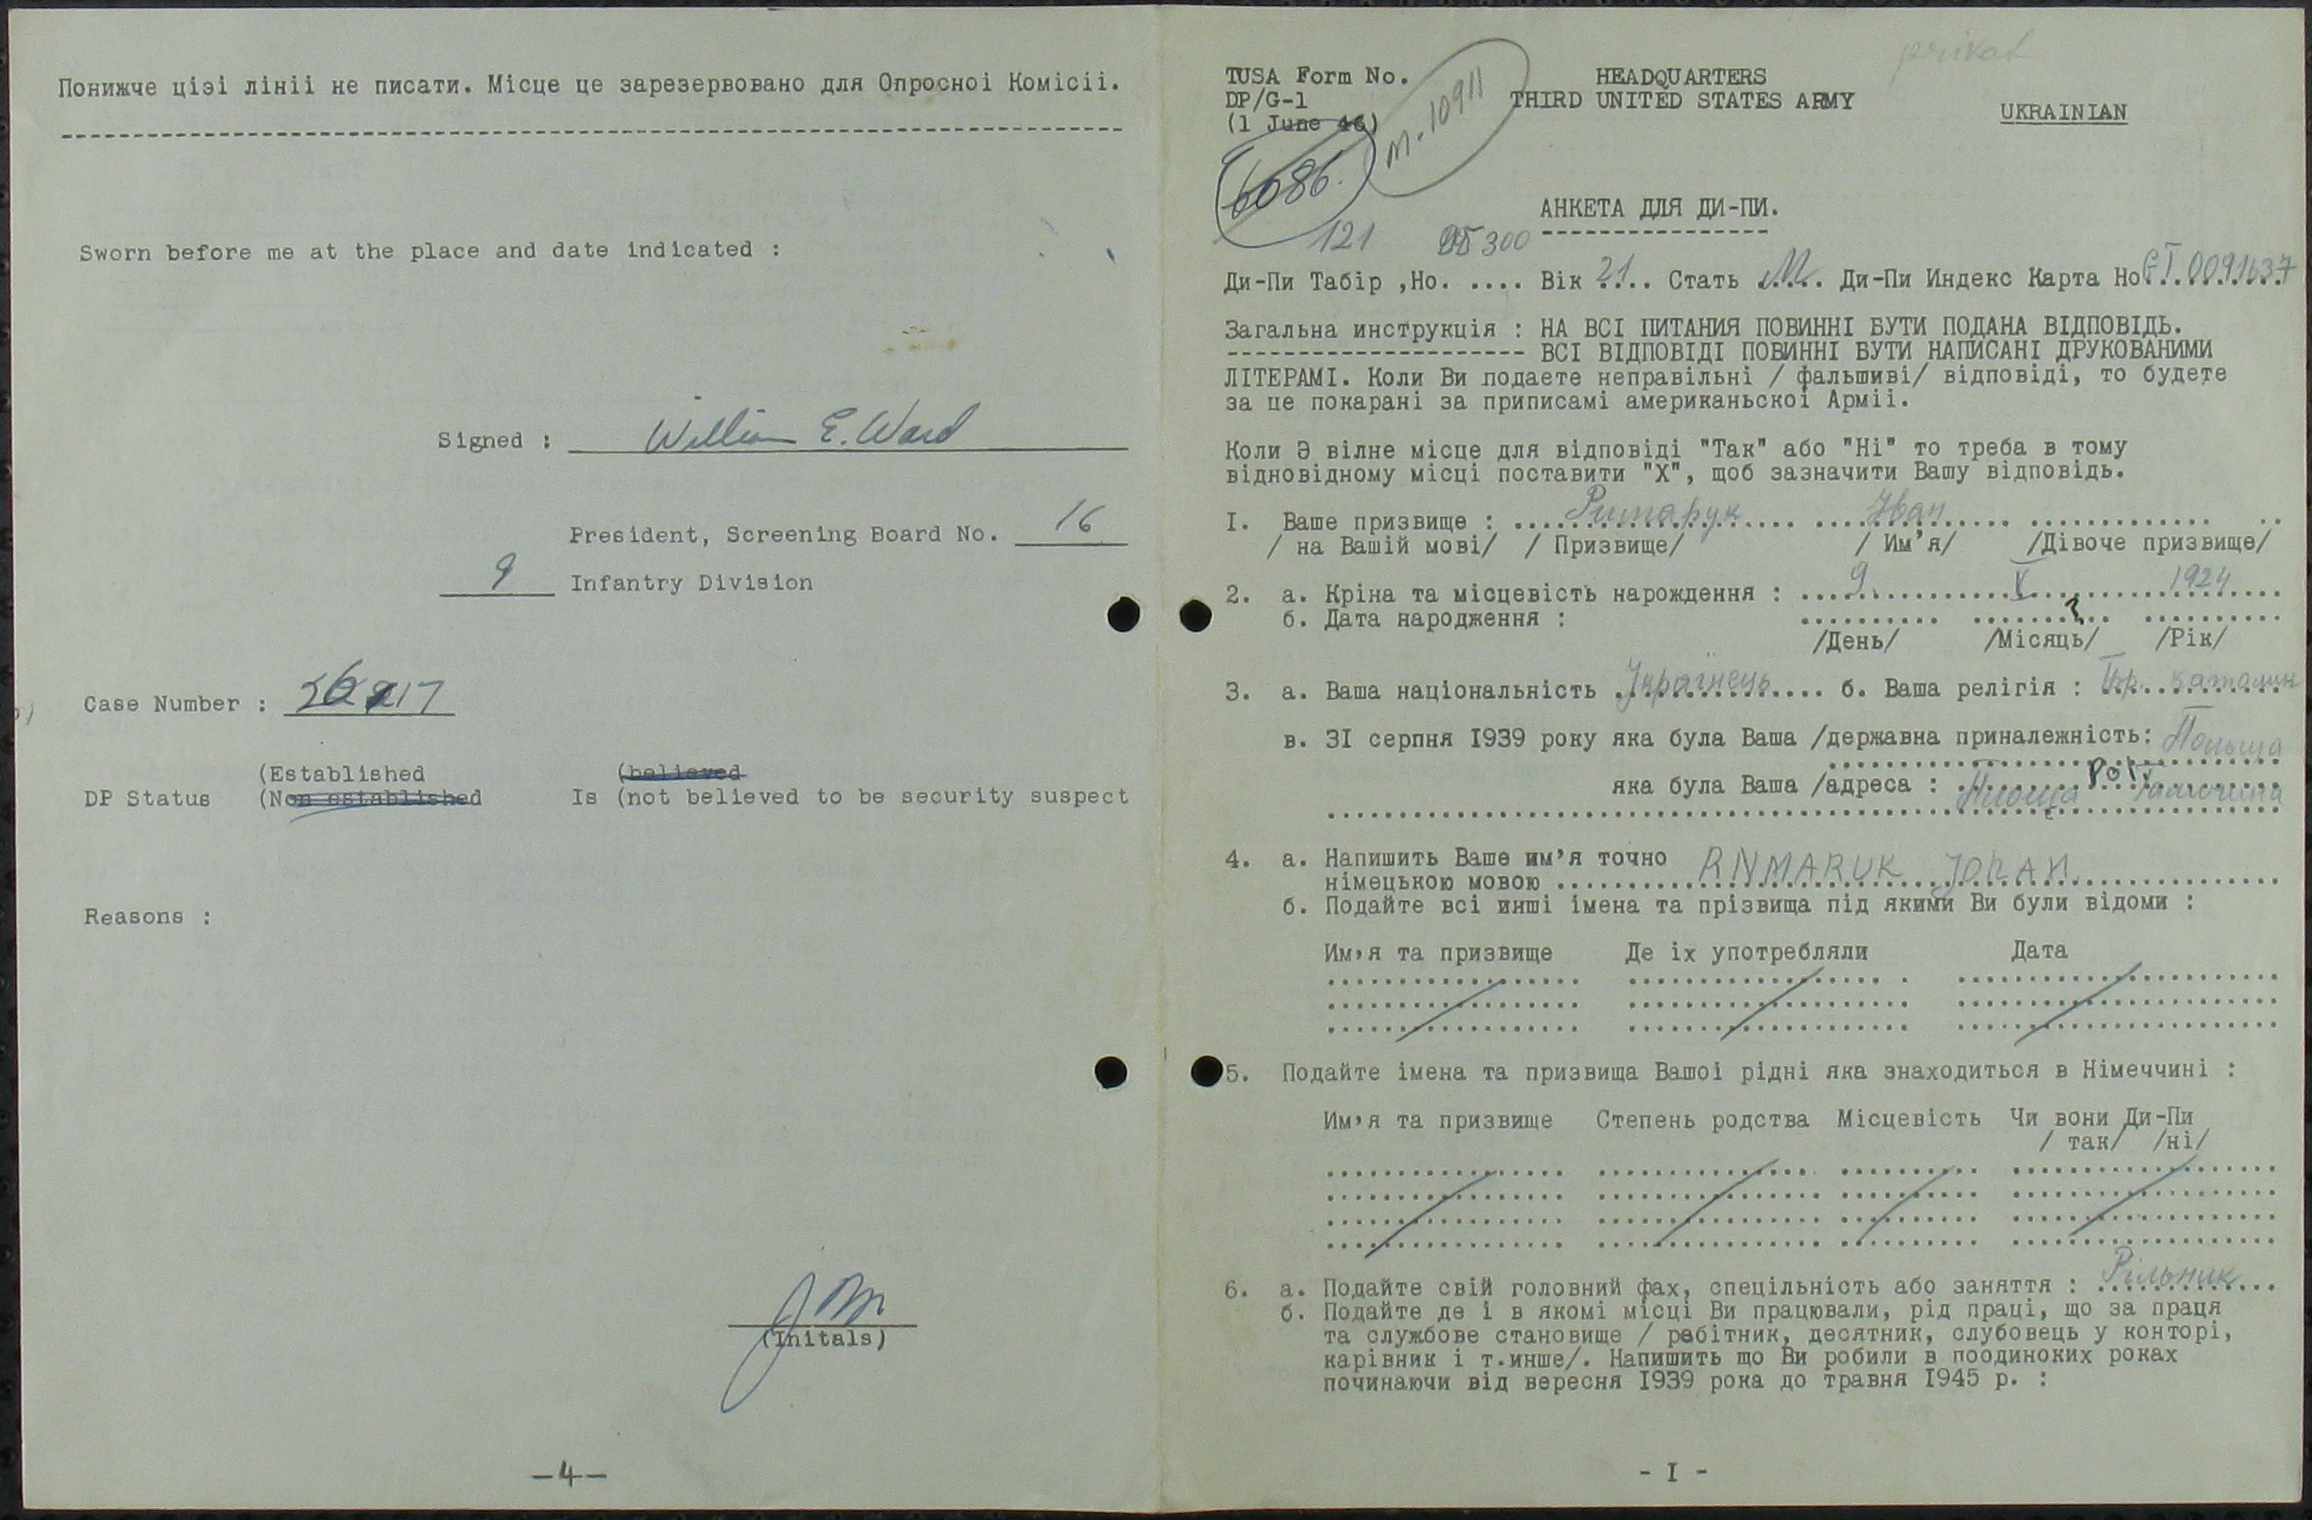 Понижче цієї лініі не писати. Місце це зарезервовано для Опросноі Комісіі.
Sworn before me at the place and date indicated :
Signed : William E. Ward
President, Screening Board No. 16
9 Infantry Division
Case Number :
(Established (believed
DP Status (Non established Is (not believed to be security suspect
Reasons :
(Initals)
-4-
prikat
TUSA Form No. HEADQUARTERS
DP/G-1 THIRD UNITED STATES ARMY
(1 June 46) UKRAINIAN
M-10911
6086.
АНКЕТА ДЛЯ ДИ-ПИ.
121 300
Ди-Пи Табір ,Но. .... Вік 21 Стать М. Ди-Пи Индекс Карта Но. GI.0091637
Загальна инструкція : НА ВСІ ПИТАНИЯ ПОВИННІ БУТИ ПОДАНА ВІДПОВІДЬ.
--------------------- ВСІ ВІДПОВІДІ ПОВИННІ БУТИ НАПИСАНІ ДРУКОВАНИМИ
ЛІТЕРАМІ. Коли Ви подаете неправільні / фальшиві/ відповіді, то будете
за це покарані за приписамі американьскоі Арміі.
Коли Э вілне місце для відповіді "Так" або "Ні" то треба в тому
відновідному місці поставити "Х", щоб зазначити Вашу відповідь.
I. Ваше призвище : Римарук Іван
/ на Вашій мові/ / Призвище/ / Им'я/ /Дівоче призвище/
2. а. Кріна та місцевість нарождення : 9. V 1924
б. Дата народження : ?
/День/ /Місяць/ /Рік/
3. а. Ваша національність Українець б. Ваша релігія :
в. 3I серпня I939 року яка була Ваша /державна приналежність: Польща
яка була Ваша /адреса : Pol. Галичина
4. а. Напишить Ваше им'я точно RNMARUK JOHAN
німецькою мовою
б. Подайте всі инші імена та прізвища під якими Ви були відоми :
Им,я та призвище Де іх употребляли Дата
5. Подайте імена та призвища Вашоі рідні яка знаходиться в Німеччині :
Им,я та призвище Степень родства Місцевість Чи вони Ди-Пи
/ так/ /ні/
6. а. Подайте свій головний фах, спецільність або заняття : Рільник
б. Подайте де і в якомі місці Ви працювали, рід праці, що за праця
та службове становище / рабітник, десятник, слубовець у конторі,
карівник і т.инше/. Напишить що Ви робили в поодиноких роках
починаючи від вересня I939 рока до травня I945 р. :
- I -